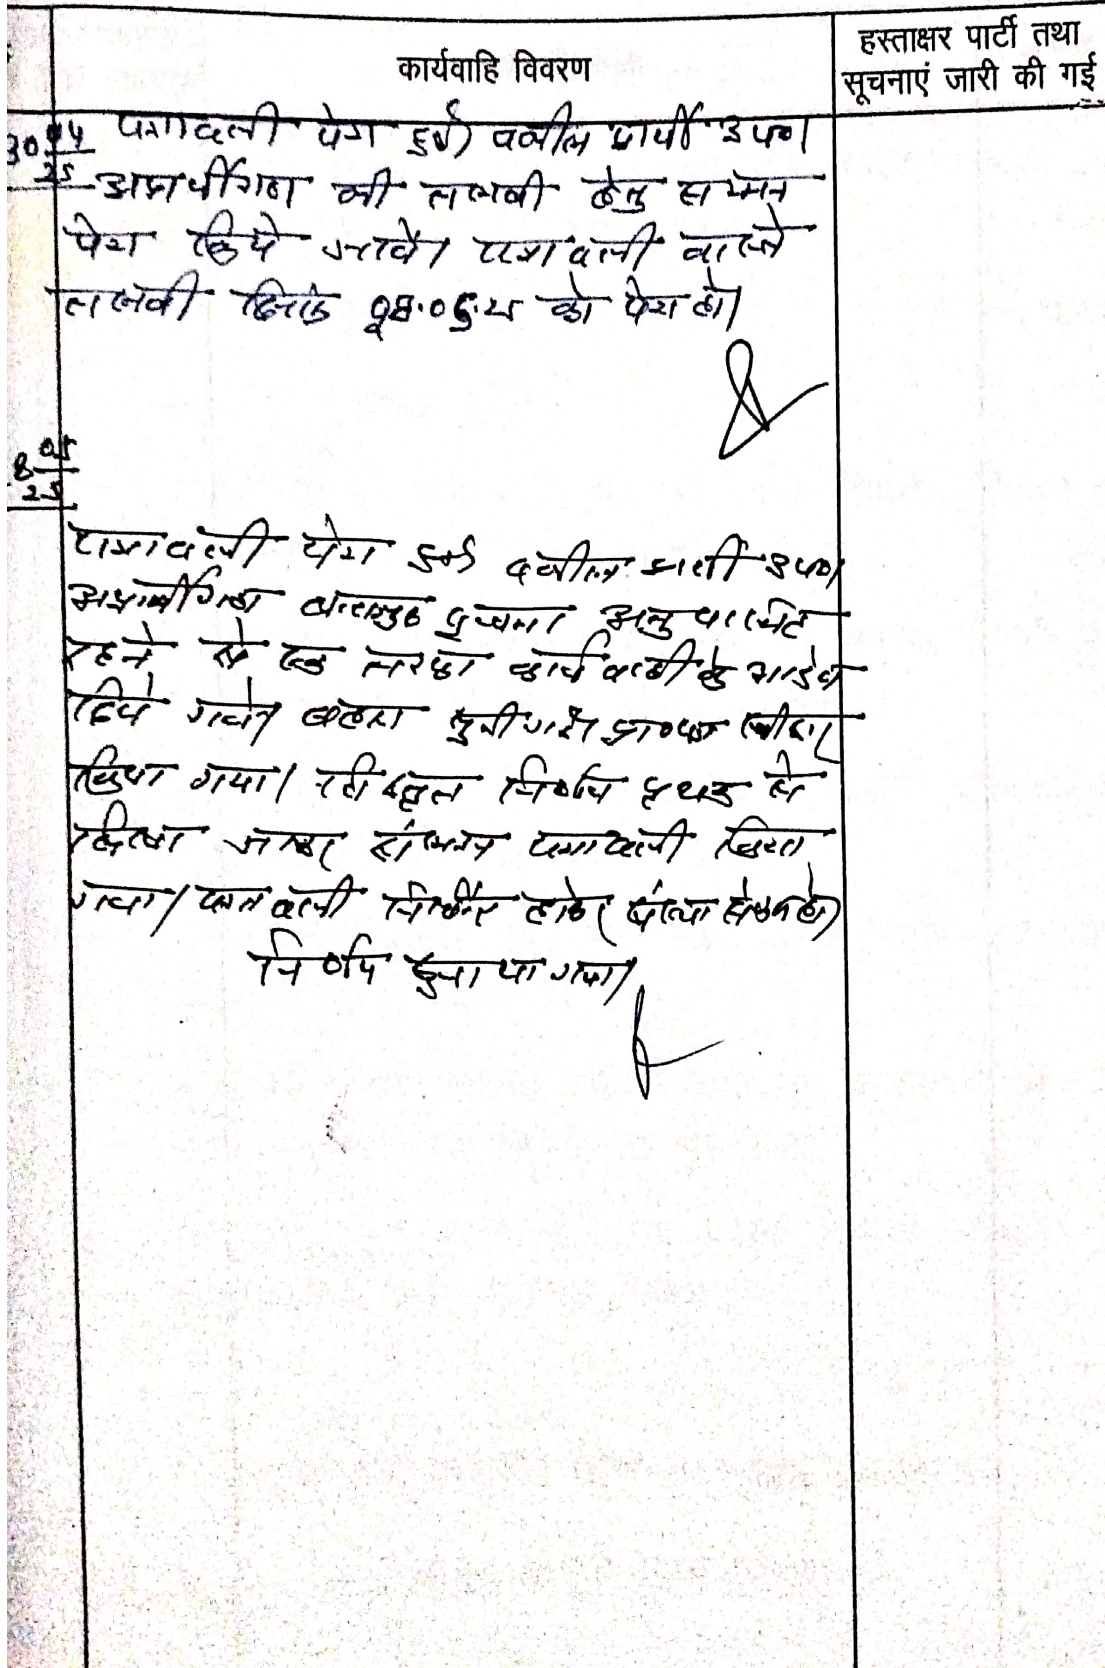 कार्यवाहि विवरण
हस्ताक्षर पार्टी तथा
सूचनाएं जारी की गई
30 04
25
पत्रावली पेश हुई। वकील प्रार्थी उप०।
अप्रार्थीगण की तलबी हेतु सम्मन
पेश किये जावे। पत्रावली वास्ते
तलबी दिनांक को पेश हो।
8 05
25
पत्रावली पेश हुई वकील प्रार्थी उप०।
अप्रार्थीगण सूचना अनुपस्थित
रहने से एक तरफा कार्यवाही के आदेश
दिये गये। बहस सुनी गई। प्रा०पत्र स्वीकार
किया गया। निर्णय पृथक से
लिखा जाकर संलग्न पत्रावली किया
गया। पत्रावली होकर हो।
निर्णय सुनाया गया।